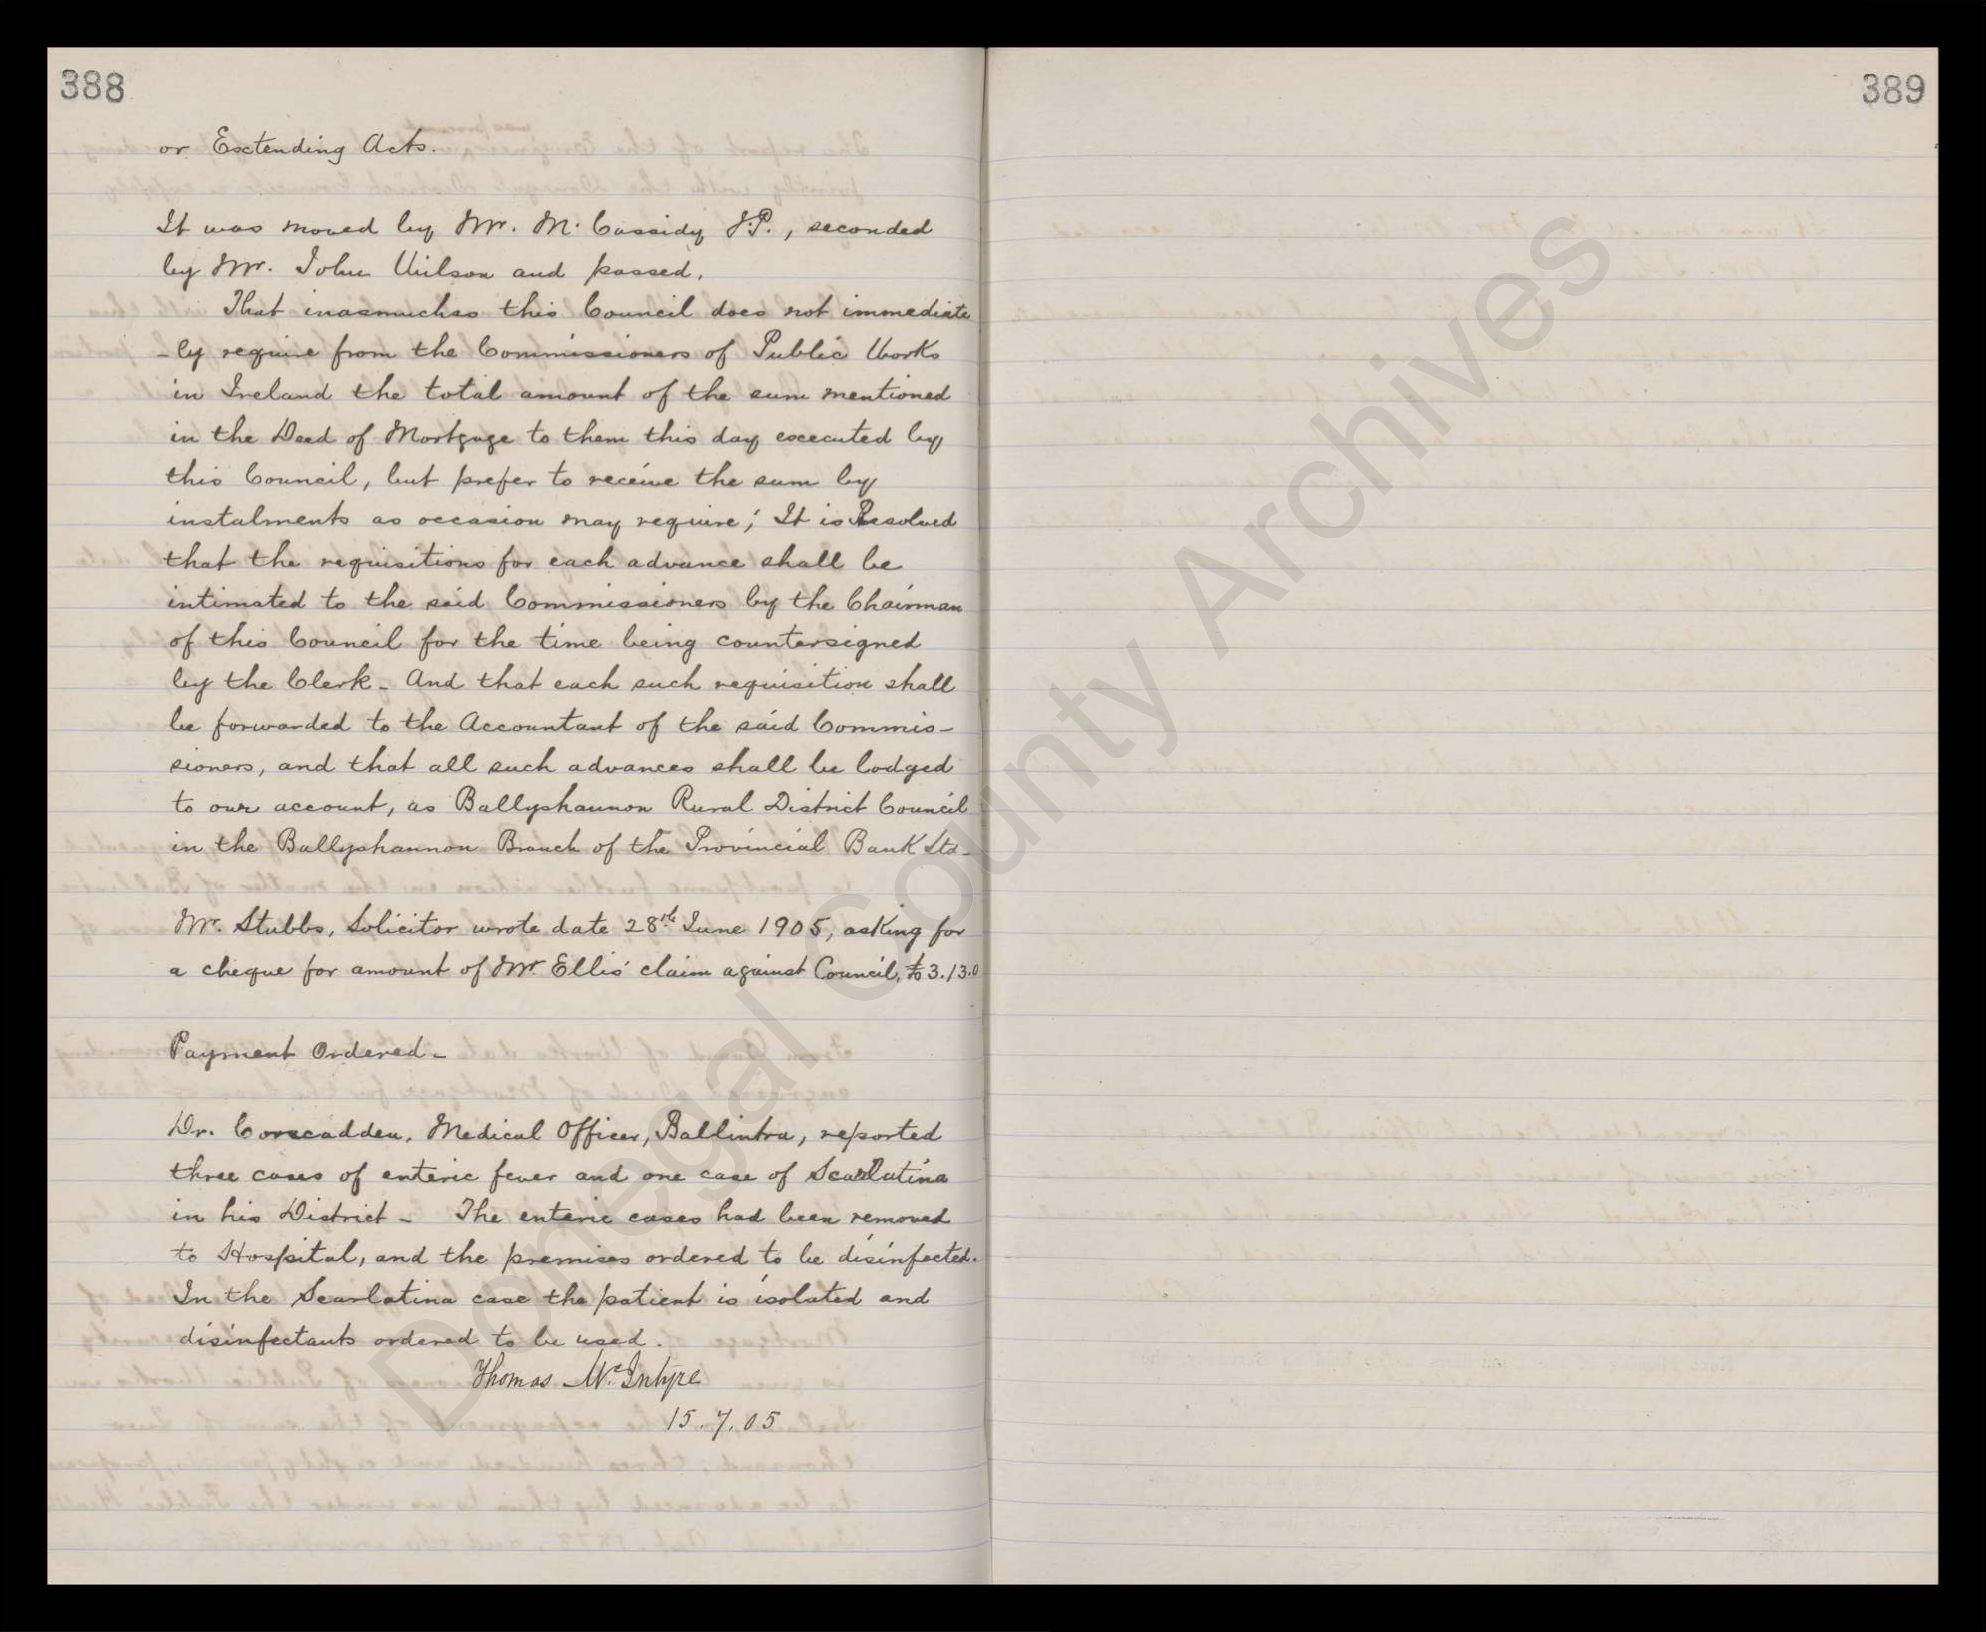 388
or Extending Acts.
It was moved by Mr. M. Cassidy J.P., seconded
by Mr. John Wilson and passed.
That inasmuchas this Council does not immediate
-ly require from the Commissioners of Public Works
in Ireland the total amount of the sum mentioned
in the Deed of Mortgage to them this day executed by
this Council, but prefer to receive the sum by
instalments as occasion may require; It is Resolved
that the requisitions for each advance shall be
intimated to the said Commissioners by the Chairman
of this Council for the time being countersigned
by the Clerk - And that each such requisition shall
be forwarded to the Accountant of the said Commis-
sioners, and that all such advances shall be lodged
to our account, as Ballyshannon Rural District Council
in the Ballyshannon Branch of the Provincial Bank Ltd-
Mr. Stubbs, Solicitor wrote date 28th June 1905, asking for
a cheque for amount of Mr. Ellis' claim against Council, £3.13.0
Payment Ordered -
Dr. Corscadden, Medical Officer, Ballintra, reported
three cases of enteric fever and one case of Scarlatina
in his District - The enteric cases had been removed
to Hospital, and the premises ordered to be disinfected.
In the Scarlatina case the patient is isolated and
disinfectants ordered to be used.
Thomas McIntyre
15.7.05
389
Donegal County Archives